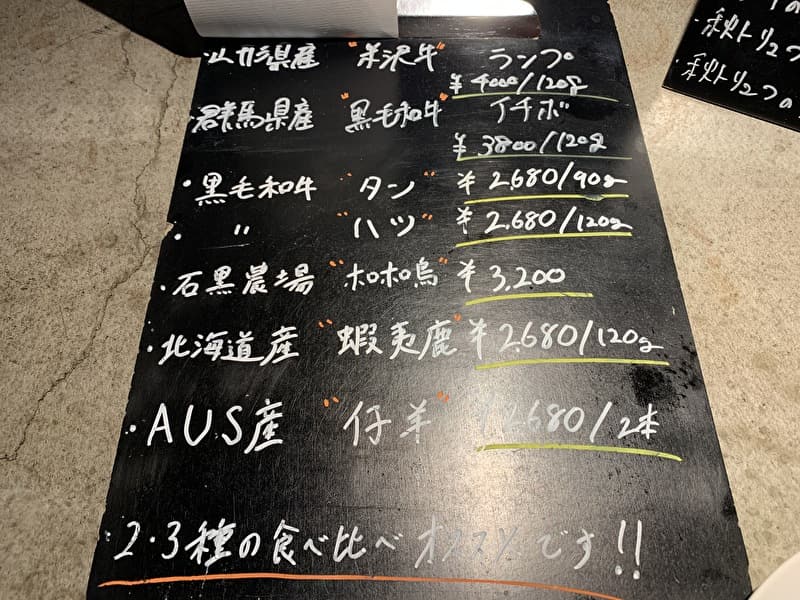 ・山形県産 "米沢牛" ランプ
¥4000/120g
・群馬県産 "黒毛和牛" イチボ
¥3800/120g
・黒毛和牛 "タン" ¥2,680/90g
・ 〃 "ハツ" ¥2,680/120g
・石黒農場 "ホロホロ鳥" ¥3,200
・北海道産 "蝦夷鹿" ¥2,680/120g
・AUS産 "仔羊" ¥2,680/2本
2・3種の食べ比べオススメです!!
・秋トリュフ
・秋トリュフの